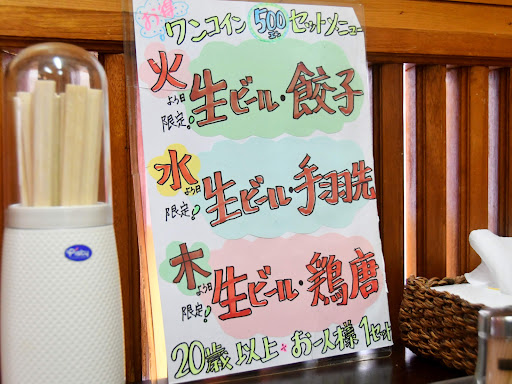 お得
ワンコイン500円セットメニュー
火よう日限定!
生ビール・餃子
水よう日限定!
生ビール・手羽先
木よう日限定!
生ビール・鶏唐
20歳以上・お一人様1セット